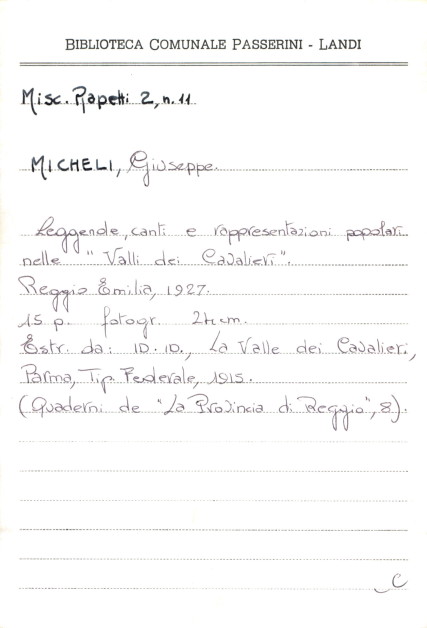 BIBLIOTECA COMUNALE PASSERINI - LANDI
Misc. Rapetti 2, n. 11
MICHELI, Giuseppe.
Leggende, canti e rappresentazioni popolari
nelle "Valli dei Cavalieri".
Reggio Emilia, 1927.
15 p. fotogr. 24 cm.
Estr. da: ID. ID., La Valle dei Cavalieri,
Parma, Tip. Federale, 1915.
(Quaderni de "La Provincia di Reggio", 8).
C